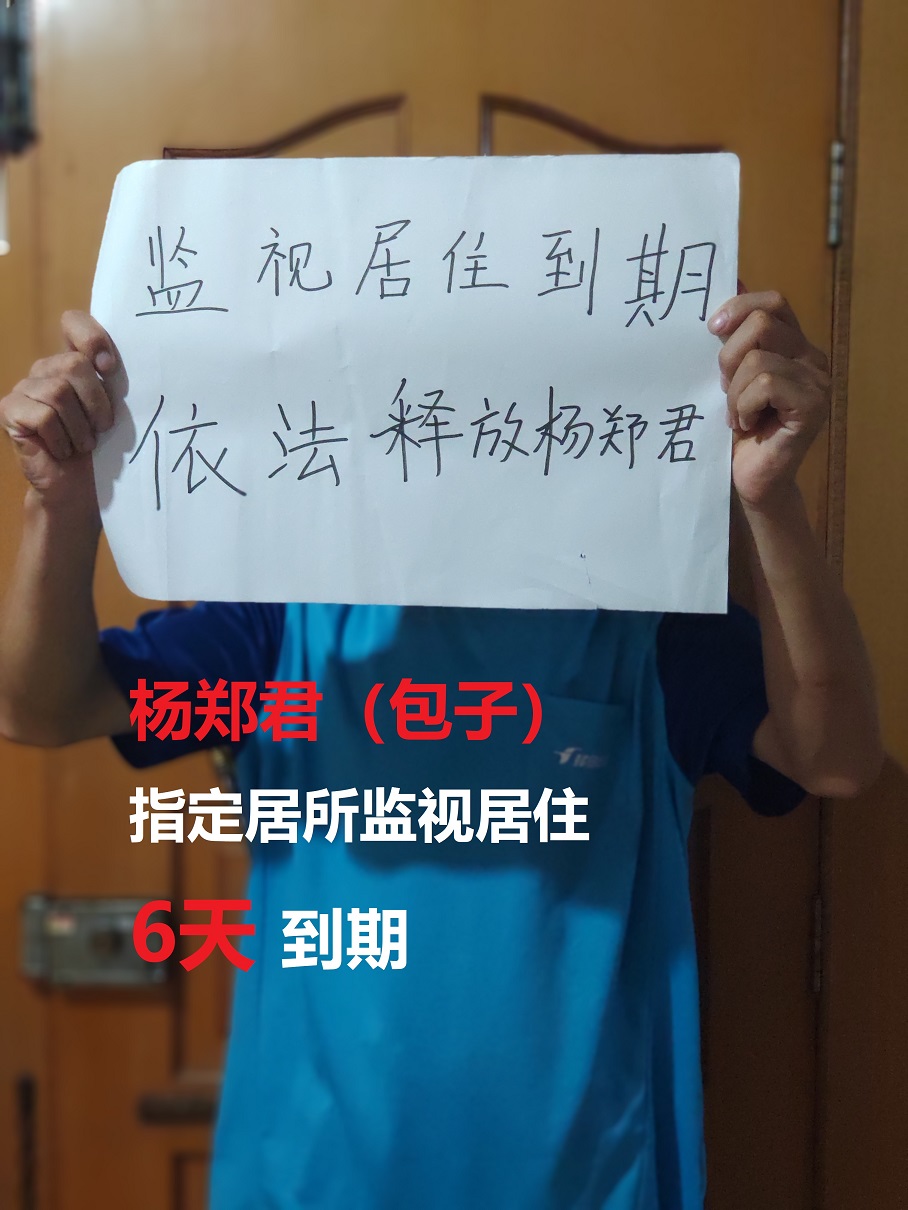 监视居住到期
依法释放杨郑君
杨郑君（包子）
指定居所监视居住
6天 到期